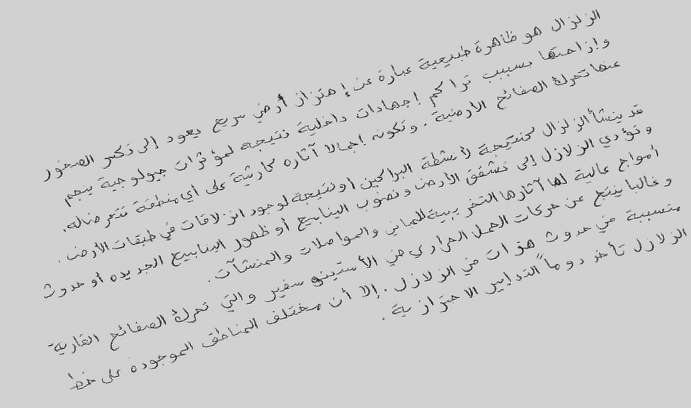 الزلزال هو ظاهرة طبيعية عبارة عن إهتزاز أرضي سريع يعود إلى تكسر الصخور
وإزاحتها بسبب تراكم إجهادات داخلية نتيجة لمؤثرات جيولوجية ينجم
عنها تحرك الصفائح الأرضية. وتكون إجمالا آثاره كارثية على أي منطقة تتعرض له.
قد ينشأ الزلزال كنتيجة لأنشطة البراكين أو نتيجة لوجود انزلاقات في طبقات الأرض.
وتؤدي الزلازل إلى تشقق الأرض ونضوب الينابيع أو ظهور الينابيع الجديده أو حدوث
أمواج عالية لها آثارها التخريبية للمباني والمواصلات والمنشآت.
وغالبا ينتج عن حركات الحمل الحراري في الأستينوسفير والتي تحرك الصفائح القارية
متسببة في حدوث هزات هي الزلازل. إلا أن مختلف المناطق الموجوده على خط
الزلازل تأخذ دوماً التدابير الاحترازية.